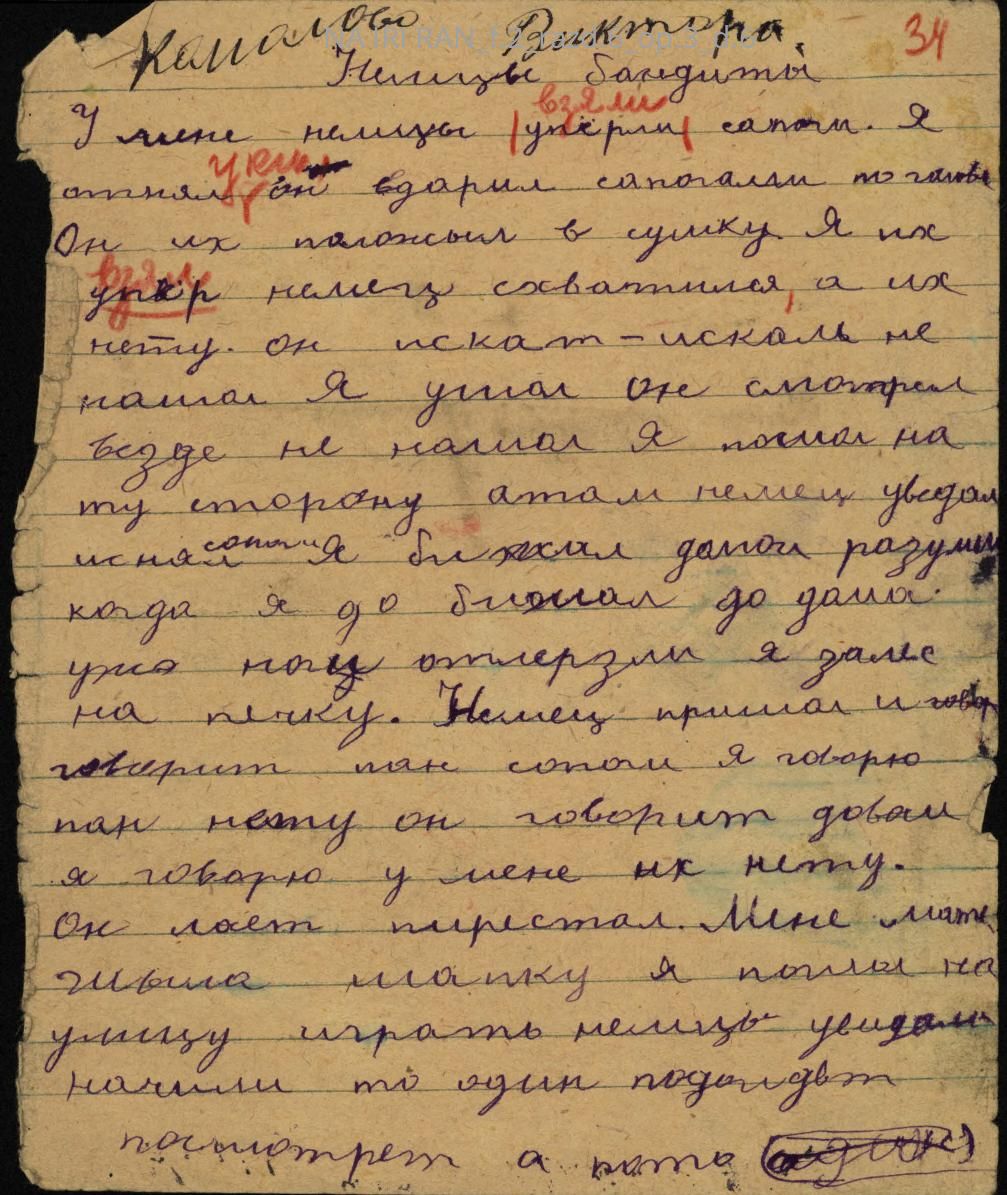 Каналова Виктора.
34
Немицы бандиты
взяли
У мене немицы упёрли сапочи. Я
отнял он вдарил сапогами по галове
Он их положыл в сумку. Я их
взяли
упёр немец схватился, а их
нету. он искат-искаль не
нашол Я ушол он смотрел
везде не нашол Я пошол на
ту сторону атам немец уведал
иснял сапоги Я бижал дамои разумши
когда я до бижал до дама.
ужэ ноги отмерзли я залес
на печку. Немец пришол и говор
говорит пан сапоги Я говорю
пан нету он говорит доваи
я говорю у мене их нету.
Он лает пирестал. Мине мать
шыла шапку я пошол на
улицу играть немицы увидали
начили то один подоидёт
посмотрет а пото